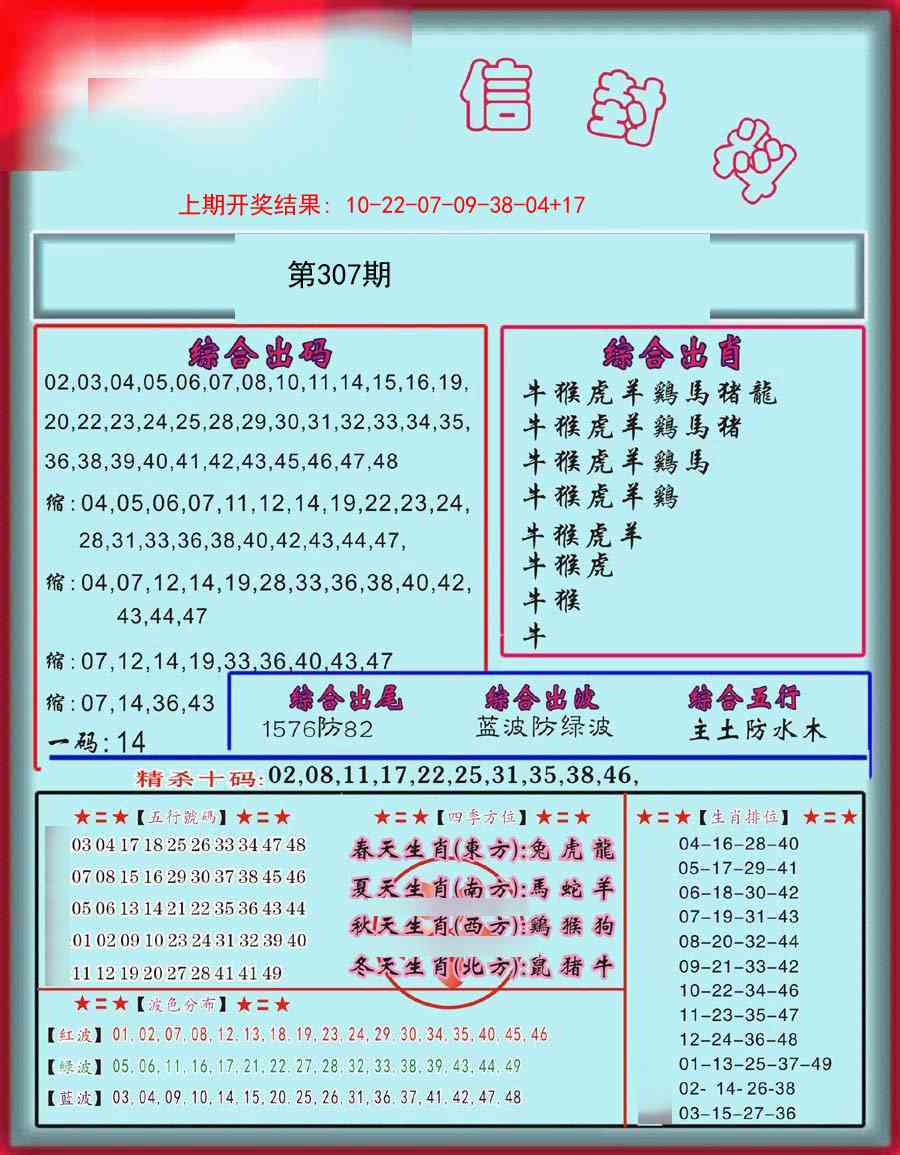 信封
上期开奖结果: 10-22-07-09-38-04+17
第307期
综合出码
02,03,04,05,06,07,08,10,11,14,15,16,19,
20,22,23,24,25,28,29,30,31,32,33,34,35,
36,38,39,40,41,42,43,45,46,47,48
缩:04,05,06,07,11,12,14,19,22,23,24,
28,31,33,36,38,40,42,43,44,47,
缩:04,07,12,14,19,28,33,36,38,40,42,
43,44,47
缩:07,12,14,19,33,36,40,43,47
缩:07,14,36,43
一码:14
综合出肖
牛猴虎羊鷄馬猪龍
牛猴虎羊鷄馬猪
牛猴虎羊鷄馬
牛猴虎羊鷄
牛猴虎羊
牛猴虎
牛猴
牛
综合出尾
1576防82
综合出波
蓝波防绿波
综合五行
主土防水木
精杀十码:02,08,11,17,22,25,31,35,38,46,
★=★【五行號碼】★=★
03 04 17 18 25 26 33 34 47 48
07 08 15 16 29 30 37 38 45 46
05 06 13 14 21 22 35 36 43 44
01 02 09 10 23 24 31 32 39 40
11 12 19 20 27 28 41 41 49
★=★【四季方位】★=★
春天生肖(東方):兔虎龍
夏天生肖(南方):馬蛇羊
秋天生肖(西方):鷄猴狗
冬天生肖(北方):鼠猪牛
★=★【生肖排位】★=★
04-16-28-40
05-17-29-41
06-18-30-42
07-19-31-43
08-20-32-44
09-21-33-42
10-22-34-46
11-23-35-47
12-24-36-48
01-13-25-37-49
02- 14-26-38
03-15-27-36
★=★【波色分布】★=★
【紅波】01,02,07,08,12,13,18,19,23,24,29.30,34,35,40,45,46
【緑波】05,06,11,16,17,21,22.27,28,32,33.38,39,43,44,49
【藍波】03,04,09,10,14,15,20.25,26,31,36,37,41.42,47,48